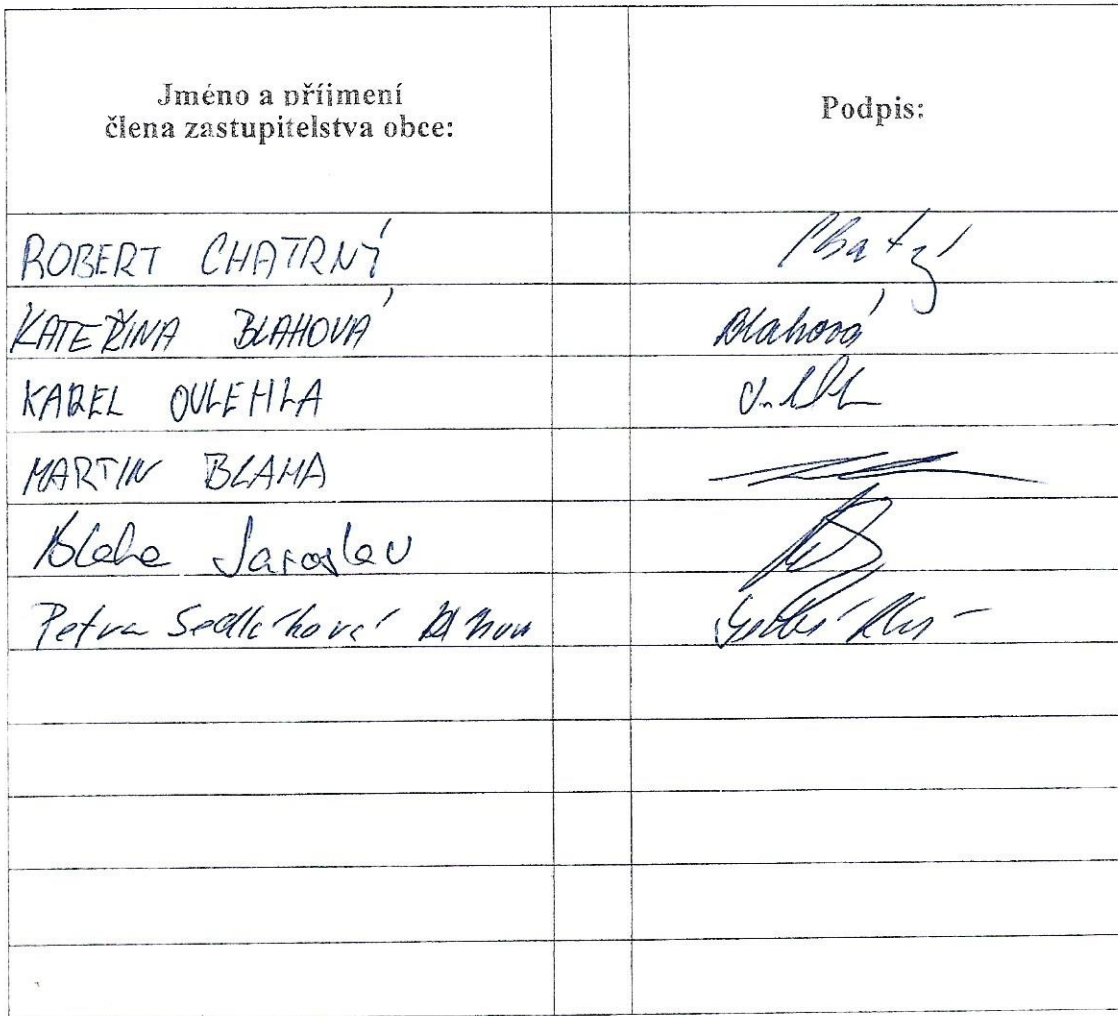 Jméno a příjmení
člena zastupitelstva obce:
Podpis:
ROBERT CHATRNÝ
KATEŘINA BLAHOVÁ Blahová
KAREL OULEHLA
MARTIN BLAHA
Blaha Jaroslav
Petra Sedláková